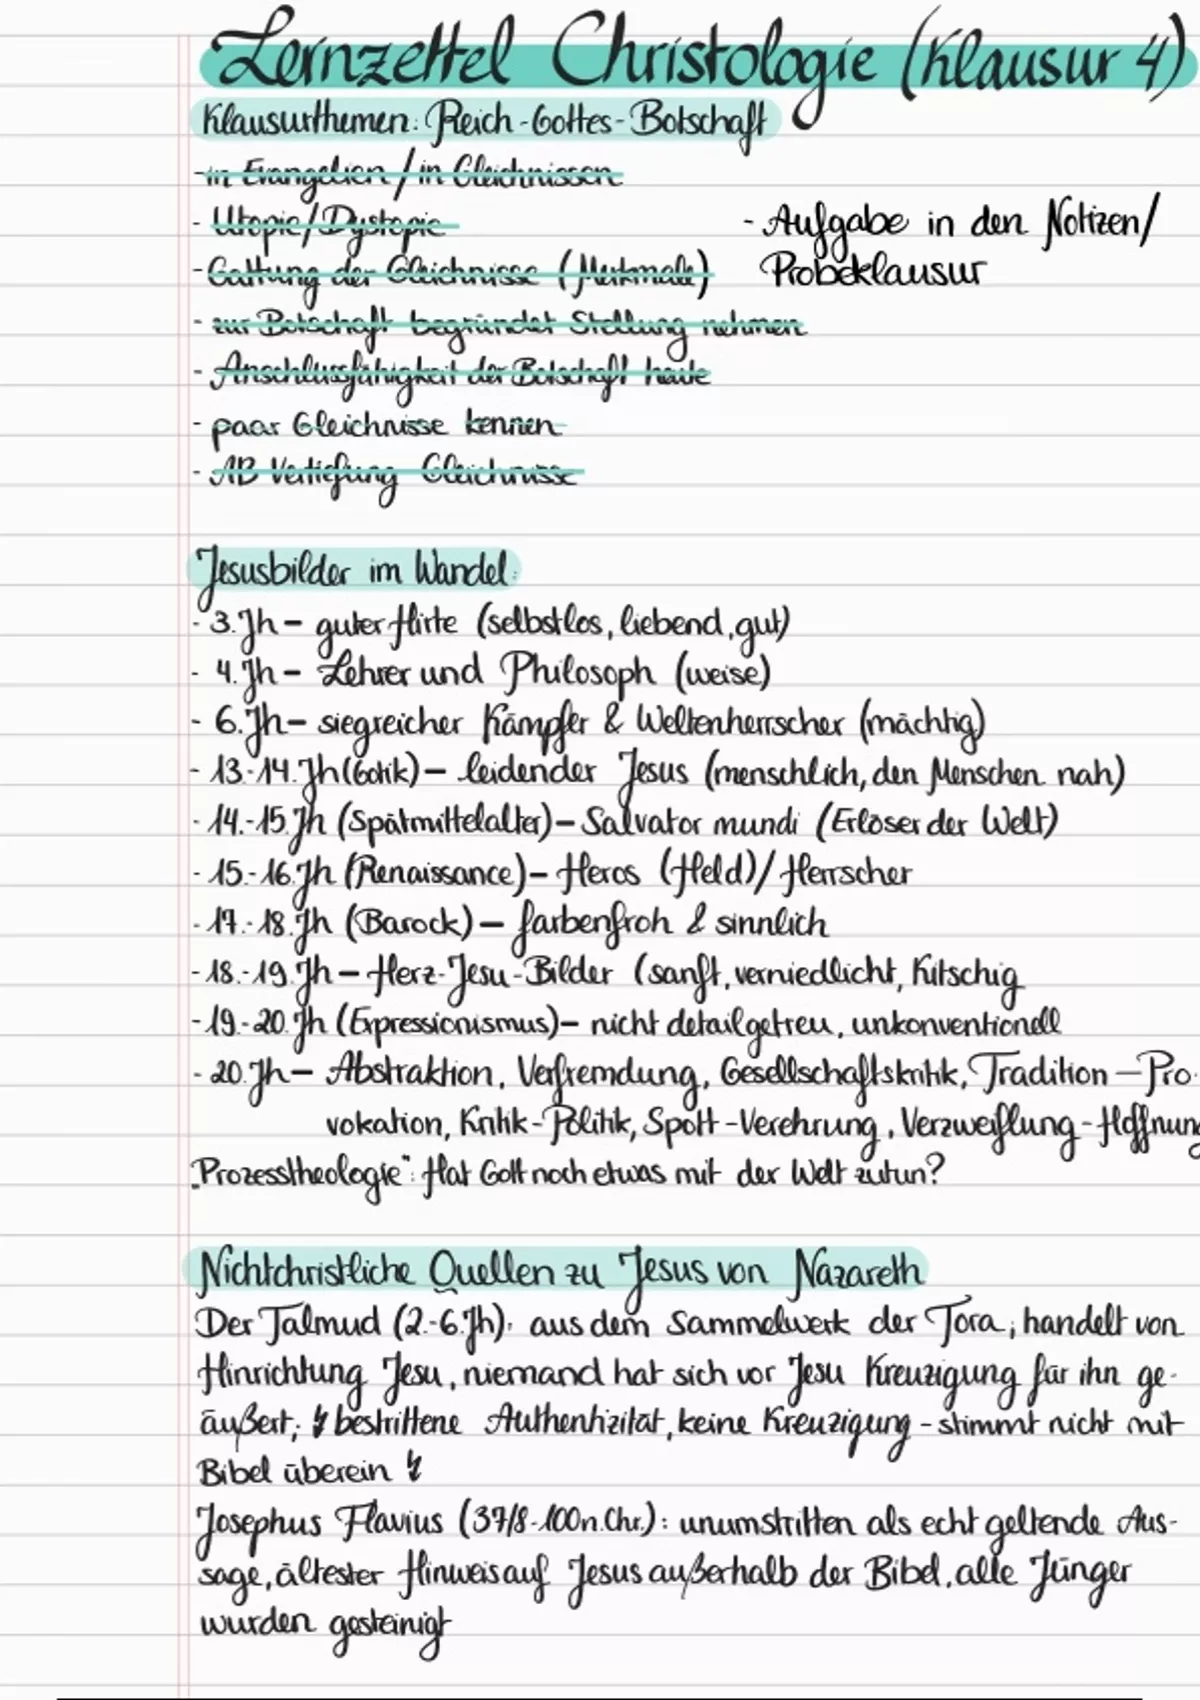 Lernzettel Christologie (Klausur 4)
Klausurthemen: Reich-Gottes-Botschaft
-in Evangelien / in Gleichnissen
- Utopie/Dystopie
- Aufgabe in den Notizen/
Probeklausur
-Gattung der Gleichnisse (Merkmale)
- zur Botschaft begründet Stellung nehmen
- Anschlussfähigkeit der Botschaft heute
- paar Gleichnisse kennen
- AB Vertiefung Gleichnisse
Jesusbilder im Wandel:
- 3.Jh – guter Hirte (selbstlos, liebend, gut)
- 4.Jh – Lehrer und Philosoph (weise)
- 6.Jh – siegreicher Kämpfer & Weltenherrscher (mächtig)
- 13.-14.Jh (Gotik) – leidender Jesus (menschlich, den Menschen nah)
- 14.-15.Jh (Spätmittelalter) – Salvator mundi (Erlöser der Welt)
- 15.-16.Jh (Renaissance) – Heros (Held)/Herrscher
- 17.-18.Jh (Barock) – farbenfroh & sinnlich
- 18.-19.Jh – Herz-Jesu-Bilder (sanft, verniedlicht, kitschig
- 19.-20.Jh (Expressionismus) – nicht detailgetreu, unkonventionell
- 20.Jh – Abstraktion, Verfremdung, Gesellschaftskritik, Tradition – Pro-
vokation, Kritik-Politik, Spott-Verehrung, Verzweiflung-Hoffnung
„Prozesstheologie": Hat Gott noch etwas mit der Welt zutun?
Nichtchristliche Quellen zu Jesus von Nazareth
Der Talmud (2.-6.Jh): aus dem Sammelwerk der Tora, handelt von
Hinrichtung Jesu, niemand hat sich vor Jesu Kreuzigung für ihn ge-
äußert; ↯ bestrittene Authentizität, keine Kreuzigung - stimmt nicht mit
Bibel überein ↯
Josephus Flavius (37/8-100n.Chr.): unumstritten als echt geltende Aus-
sage, ältester Hinweis auf Jesus außerhalb der Bibel, alle Jünger
wurden gesteinigt